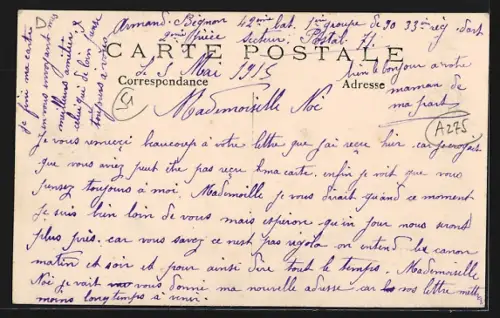 Armand Begnon 42ème bat. 1ère groupe de 90 33ème rég. d'art
2ème pièce secteur Postal 71
CARTE POSTALE
Le 5 Mai 1915
Correspondance
Adresse
bien le bonjour a votre
maman de
ma part
Mademoiselle Noé
A275
Je vous remerçi beaucoup à votre lettre que j'ai reçu hier. car je croyait
que vous aviez peut être pas reçu ma carte. enfin je voit que vous
pensez toujours à moi. Mademoiselle je vous dirait quand ce moment
je suis bien loin de vous mais espéron qu'un jour nous seront
plus près. car vous savez ce n'est pas rigolo on entend le canon
matin et soir et pour ainsi dire tout le temps. Mademoiselle
Noé je vait vous donné ma nouvelle adresse car les vos lettre mette
moins longtemps à venir.
je fini ma carte
en vous envoyant mes
meilleurs amitiés
celui qui de loin pense
toujours a vous